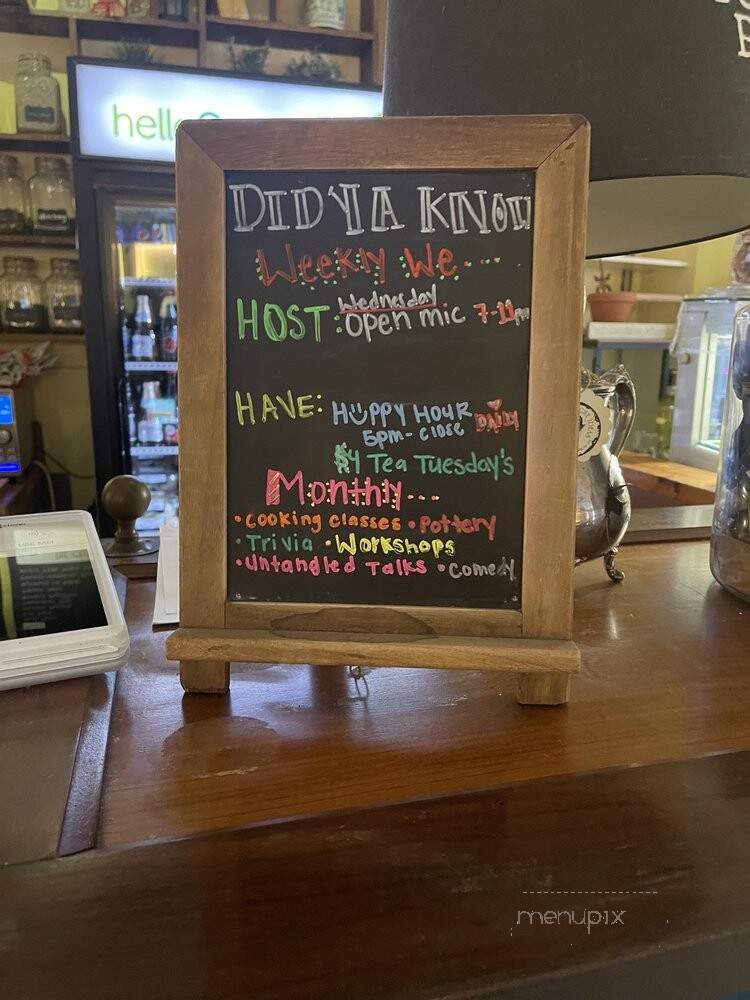 hello
DID'YA KNOW
Weekly We....
HOST: Wednesday
Open mic 7-11pm
HAVE: HUPPY HOUR DAILY
5pm-close
$4 Tea Tuesday's
Monthly...
•Cooking classes •Pottery
•Trivia •Workshops
•Untangled Talks •Comedy
menupix